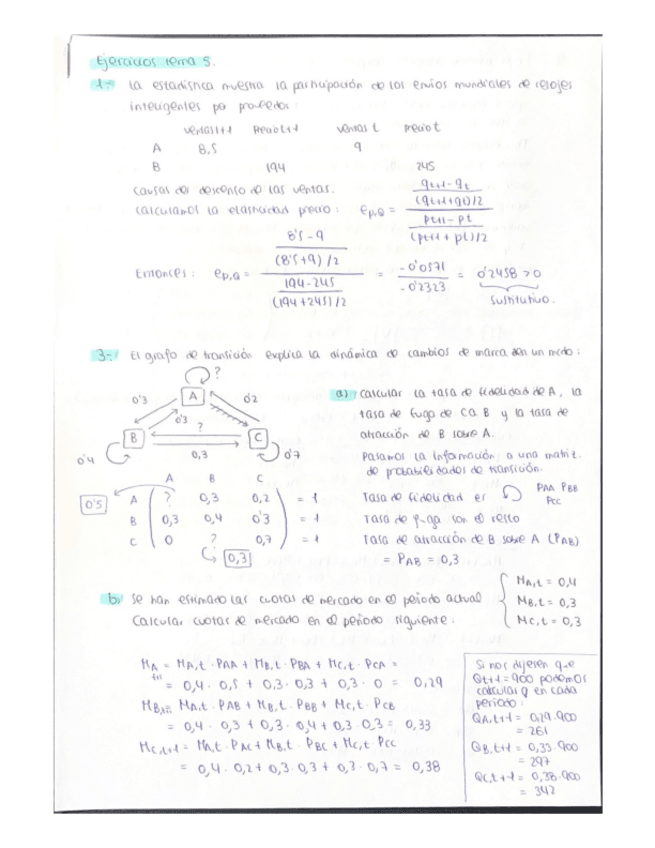 Ejercicios tema 5.
1- La estadística muestra la participación de los envíos mundiales de relojes
inteligentes por proveedor:
ventas t+1 precio t+1 ventas t precio t
A 8,5 9
B 194 245
causas del descenso de las ventas.
calculamos la elasticidad precio: eP,Q = ((qt+1 - qt) / ((qt+1 + qt)/2)) / ((pt+1 - pt) / ((pt+1 + pt)/2))
Entonces: eP,Q = ((8'5 - 9) / ((8'5 + 9)/2)) / ((194 - 245) / ((194 + 245)/2)) = -0'0571 / -0'2323 = 0'2458 > 0
sustitutivo.
3- El grafo de transición explica la dinámica de cambios de marca en un mdo:
?
A
0'3 0'2
0'3
?
B C
0'4 0,3 0'7
a) calcular la tasa de fidelidad de A, la
tasa de fuga de C a B y la tasa de
atracción de B sobre A.
Pasamos la información a una matriz
de probabilidades de transición.
A B C
0'5 A ? 0,3 0,2 = 1
B 0,3 0,4 0'3 = 1
C 0 ? 0,7 = 1
0,3
Tasa de fidelidad es PAA PBB
PCC
Tasa de fuga son el resto
Tasa de atracción de B sobre A (PAB)
= PAB = 0,3
b) Se han estimado las cuotas de mercado en el periodo actual
Calcular cuotas de mercado en el periodo siguiente:
MA,t = 0,4
MB,t = 0,3
MC,t = 0,3
MA t+1 = MA,t · PAA + MB,t · PBA + MC,t · PCA =
= 0,4 · 0,5 + 0,3 · 0,3 + 0,3 · 0 = 0,29
MB,t+1 = MA,t · PAB + MB,t · PBB + MC,t · PCB
= 0,4 · 0,3 + 0,3 · 0,4 + 0,3 · 0,3 = 0,33
MC,t+1 = MA,t · PAC + MB,t · PBC + MC,t PCC
= 0,4 · 0,2 + 0,3 · 0,3 + 0,3 · 0,7 = 0,38
Si nos dijesen que
Qt+1 = 900 podemos
calcular q en cada
periodo:
QA,t+1 = 0,29 · 900
= 261
QB,t+1 = 0,33 · 900
= 297
QC,t+1 = 0,38 · 900
= 342